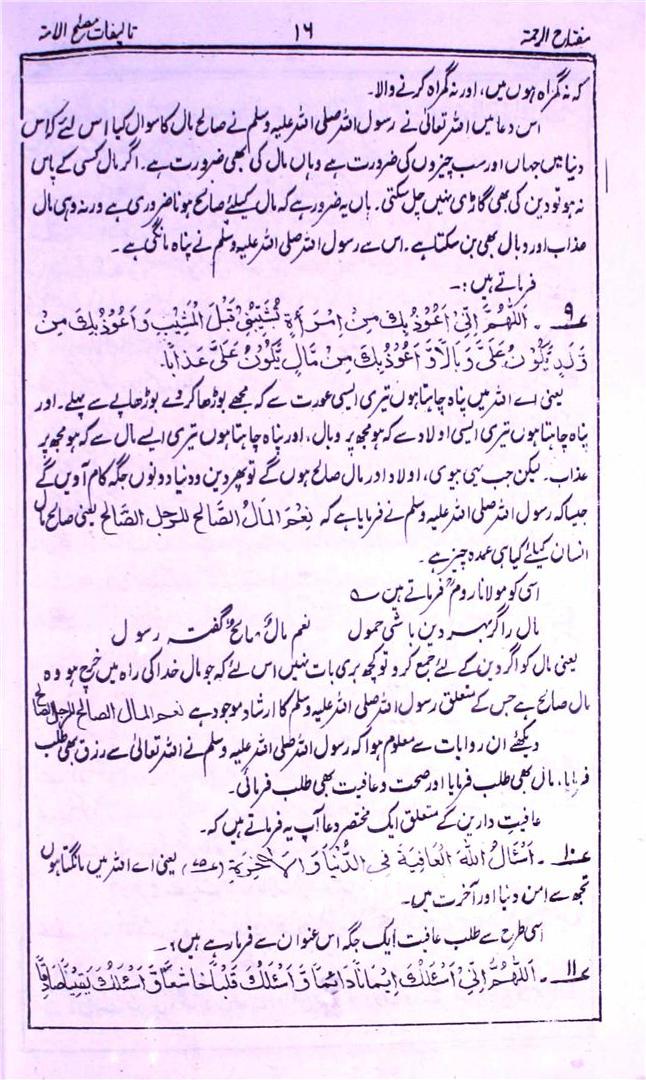 مفتاح الرحمۃ ۱۶ تالیفات مصلح الامۃ
کہ نہ گمراہ ہوں میں، اور نہ گمراہ کرنے والا۔
اس دعا میں اللہ تعالیٰ نے رسول اللہ صلی اللہ علیہ وسلم نے صالح مال کا سوال کیا اس لئے کہ اس
دنیا میں جہاں اور سب چیزوں کی ضرورت ہے وہاں مال کی بھی ضرورت ہے۔ اگر مال کسی کے پاس
نہ ہو تو دین کی بھی گاڑی نہیں چل سکتی۔ ہاں یہ ضرور ہے کہ مال کیلئے صالح ہونا ضروری ہے ورنہ وہی مال
عذاب اور وبال بھی بن سکتا ہے۔ اس سے رسول اللہ صلی اللہ علیہ وسلم نے پناہ مانگی ہے۔
فرماتے ہیں :۔
۹ ۔ اَللّٰهُمَّ اِنِّیْ اَعُوْذُ بِكَ مِنْ اِمْرَأَةٍ تُشَیِّبُنِیْ قَبْلَ الْمَشِیْبِ وَ اَعُوْذُ بِكَ مِنْ
وَّلَدٍ یَّكُوْنُ عَلَیَّ وَبَالًا وَّ اَعُوْذُ بِكَ مِنْ مَّالٍ یَّكُوْنُ عَلَیَّ عَذَابًا۔
یعنی اے اللہ میں پناہ چاہتا ہوں تیری ایسی عورت سے کہ مجھے بوڑھا کر دے بوڑھاپے سے پہلے۔ اور
پناہ چاہتا ہوں تیری ایسی اولاد سے کہ ہو مجھ پر وبال، اور پناہ چاہتا ہوں تیری ایسے مال سے کہ ہو مجھ پر
عذاب۔ لیکن جب یہی بیوی، اولاد اور مال صالح ہوں گے تو پھر دین و دنیا دونوں جگہ کام آویں گے
جیسا کہ رسول اللہ صلی اللہ علیہ وسلم نے فرمایا ہے کہ نِعْمَ الْمَالُ الصَّالِحُ لِلرَّجُلِ الصَّالِحِ یعنی صالح مال
انسان کیلئے کیا ہی عمدہ چیز ہے۔
اسی کو مولانا رومؒ فرماتے ہیں ؎
مال را گر بہر دین باشی حمول نعم مالٌ صالحٌ گفت رسول
یعنی مال کو اگر دین کے لئے جمع کرو تو کچھ بری بات نہیں اس لئے کہ جو مال خدا کی راہ میں خرچ ہو وہ
مال صالح ہے جس کے متعلق رسول اللہ صلی اللہ علیہ وسلم کا ارشاد موجود ہے نعم المال الصالح للرجل الصالح
دیکھئے ان روایات سے معلوم ہوا کہ رسول اللہ صلی اللہ علیہ وسلم نے اللہ تعالیٰ سے رزق بھی طلب
فرمایا، مال بھی طلب فرمایا اور صحت و عافیت بھی طلب فرمائی۔
عافیتِ دارین کے متعلق ایک مختصر دعا آپ یہ فرماتے ہیں کہ۔
۱۰ ۔ اَسْئَالُ اللّٰهَ الْعَافِیَةَ فِی الدُّنْیَا وَ الْاٰخِرَةِ یعنی اے اللہ میں مانگتا ہوں
تجھ سے امن دنیا اور آخرت میں۔
اسی طرح سے طلب عافیت ایک جگہ اس عنوان سے فرما رہے ہیں :۔
۱۱ ۔ اَللّٰهُمَّ اِنِّیْ اَسْئَلُكَ اِیْمَانًا دَائِمًا وَّ اَسْئَلُكَ قَلْبًا خَاشِعًا وَّ اَسْئَلُكَ یَقِیْنًا صَادِقًا